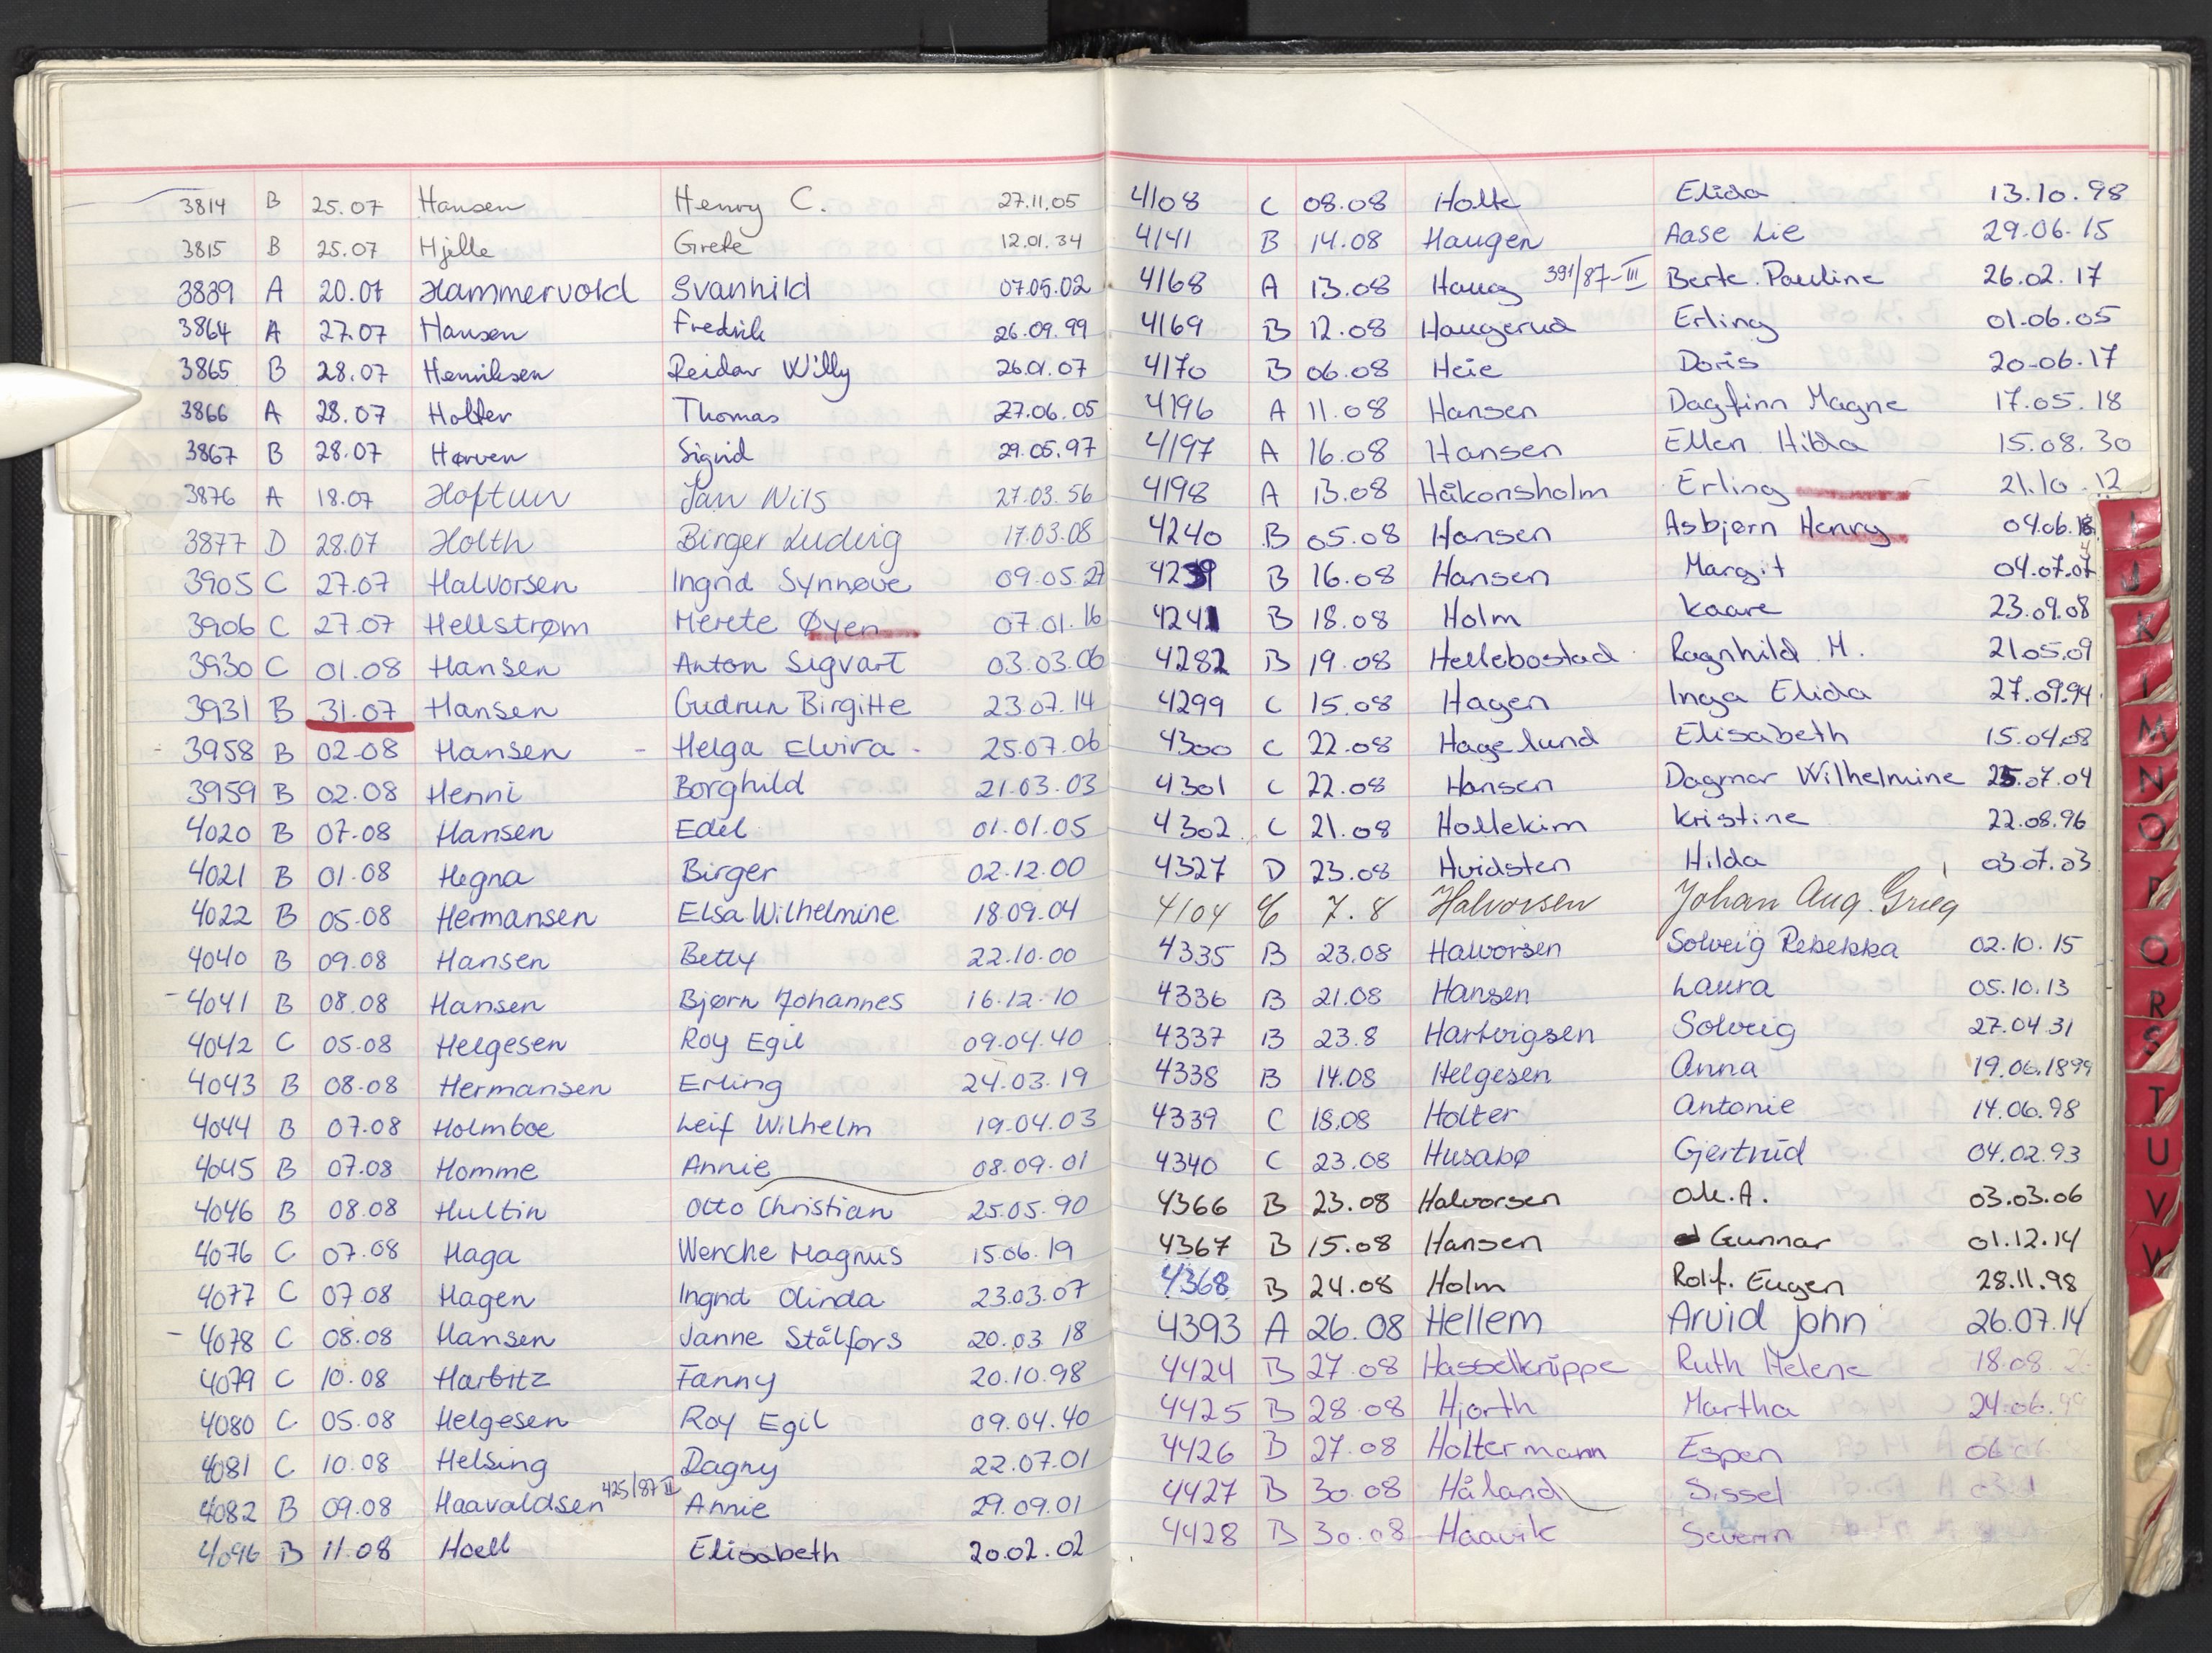 3814 B 25.07 Hansen Henry C. 27.11.05
3815 B 25.07 Hjelle Grete 12.01.34
3839 A 20.07 Hammervold Svanhild 07.05.02
3864 A 27.07 Hansen Fredrik 26.09.99
3865 B 28.07 Henriksen Reidar Willy 26.01.07
3866 A 28.07 Holter Thomas 27.06.05
3867 B 28.07 Hørven Sigrid 29.05.97
3876 A 18.07 Hoftun Jan Nils 27.03.56
3877 D 28.07 Holth Birger Ludvig 17.03.08
3905 C 27.07 Halvorsen Ingrid Synnøve 09.05.27
3906 C 27.07 Hellstrøm Merete Øyen 07.01.16
3930 C 01.08 Hansen Anton Sigvart 03.03.06
3931 B 31.07 Hansen Gudrun Birgitte 23.07.14
- 3958 B 02.08 Hansen - Helga Elvira - 25.07.06
3959 B 02.08 Henni Borghild 21.03.03
4020 B 07.08 Hansen Edel 01.01.05
4021 B 01.08 Hegna Birger 02.12.00
4022 B 05.08 Hermansen Elsa Wilhelmine 18.09.04
4040 B 09.08 Hansen Betty 22.10.00
- 4041 B 08.08 Hansen Bjørn Johannes 16.12.10
4042 C 05.08 Helgesen Roy Egil 09.04.40
4043 B 08.08 Hermansen Erling 24.03.19
4044 B 07.08 Holmboe Leif Wilhelm 19.04.03
4045 B 07.08 Homme Annie 08.09.01
4046 B 08.08 Hultin Otto Christian 25.05.90
4076 C 07.08 Haga Wenche Magnus 15.06.19
4077 C 07.08 Hagen Ingrid Olinda 23.03.07
- 4078 C 08.08 Hansen Janne Stålfors 20.03.18
4079 C 10.08 Harbitz Fanny 20.10.98
4080 C 05.08 Helgesen Roy Egil 09.04.40
4081 C 10.08 Helsing Dagny 22.07.01
4082 B 09.08 Haavaldsen 425/87 II Annie 29.09.01
4096 B 11.08 Hoell Elisabeth 20.02.02
4108 C 08.08 Holte Elida 13.10.98
4141 B 14.08 Haugen Aase Lie 29.06.15
4168 A 13.08 Haug 391/87-III Berte Pauline 26.02.17
4169 B 12.08 Haugerud Erling 01.06.05
4170 B 06.08 Heie Doris 20.06.17
4196 A 11.08 Hansen Dagfinn Magne 17.05.18
4197 A 16.08 Hansen Ellen Hilda 15.08.30
4198 A 13.08 Håkonsholm Erling 21.10.12
4240 B 05.08 Hansen Asbjørn Henry 04.06.18
4239 B 16.08 Hansen Margit 04.07.07
4241 B 18.08 Holm Kaare 23.09.08
4282 B 19.08 Hellebostad Ragnhild M. 21.05.09
4299 C 15.08 Hagen Inga Elida 27.09.94
4300 C 22.08 Hagelund Elisabeth 15.04.08
4301 C 22.08 Hansen Dagmar Wilhelmine 25.07.04
4302 C 21.08 Hollekim Kristine 22.08.96
4327 D 23.08 Hvidsten Hilda 03.07.03
4104 C 7.8 Halvorsen Johan Aug. Grieg
4335 B 23.08 Halvorsen Solveig Rebekka 02.10.15
4336 B 21.08 Hansen Laura 05.10.13
4337 B 23.8 Hartvigsen Solveig 27.04.31
4338 B 14.08 Helgesen Anna 19.06.1899
4339 C 18.08 Holter Antonie 14.06.98
4340 C 23.08 Husabø Gjertrud 04.02.93
4366 B 23.08 Halvorsen Ole. A. 03.03.06
4367 B 15.08 Hansen Gunnar 01.12.14
4368 B 24.08 Holm Rolf. Eugen 28.11.98
4393 A 26.08 Hellem Arvid John 26.07.14
4424 B 27.08 Hasselkrippe Ruth Helene 18.08
4425 B 28.08 Hjorth Martha 24.06.99
4426 B 27.08 Holtermann Espen
4427 B 30.08 Håland Sissel
4428 B 30.08 Haavik Severin
I
J
K
L
M
N
O
P
Q
R
S
T
U
V
W